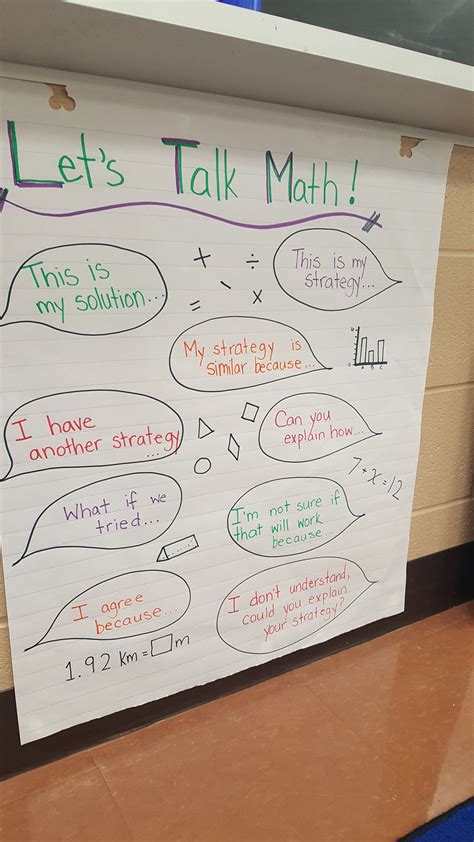 Let's Talk Math!
This is
my solution...
+ ÷
= x
This is my
strategy...
My strategy is
similar because...
I have
another strategy
...
Can you
explain how...
7+x=12
What if we
tried...
I'm not sure if
that will work
because...
I agree
because...
I don't understand,
could you explain
your strategy?
1.92 km=□m